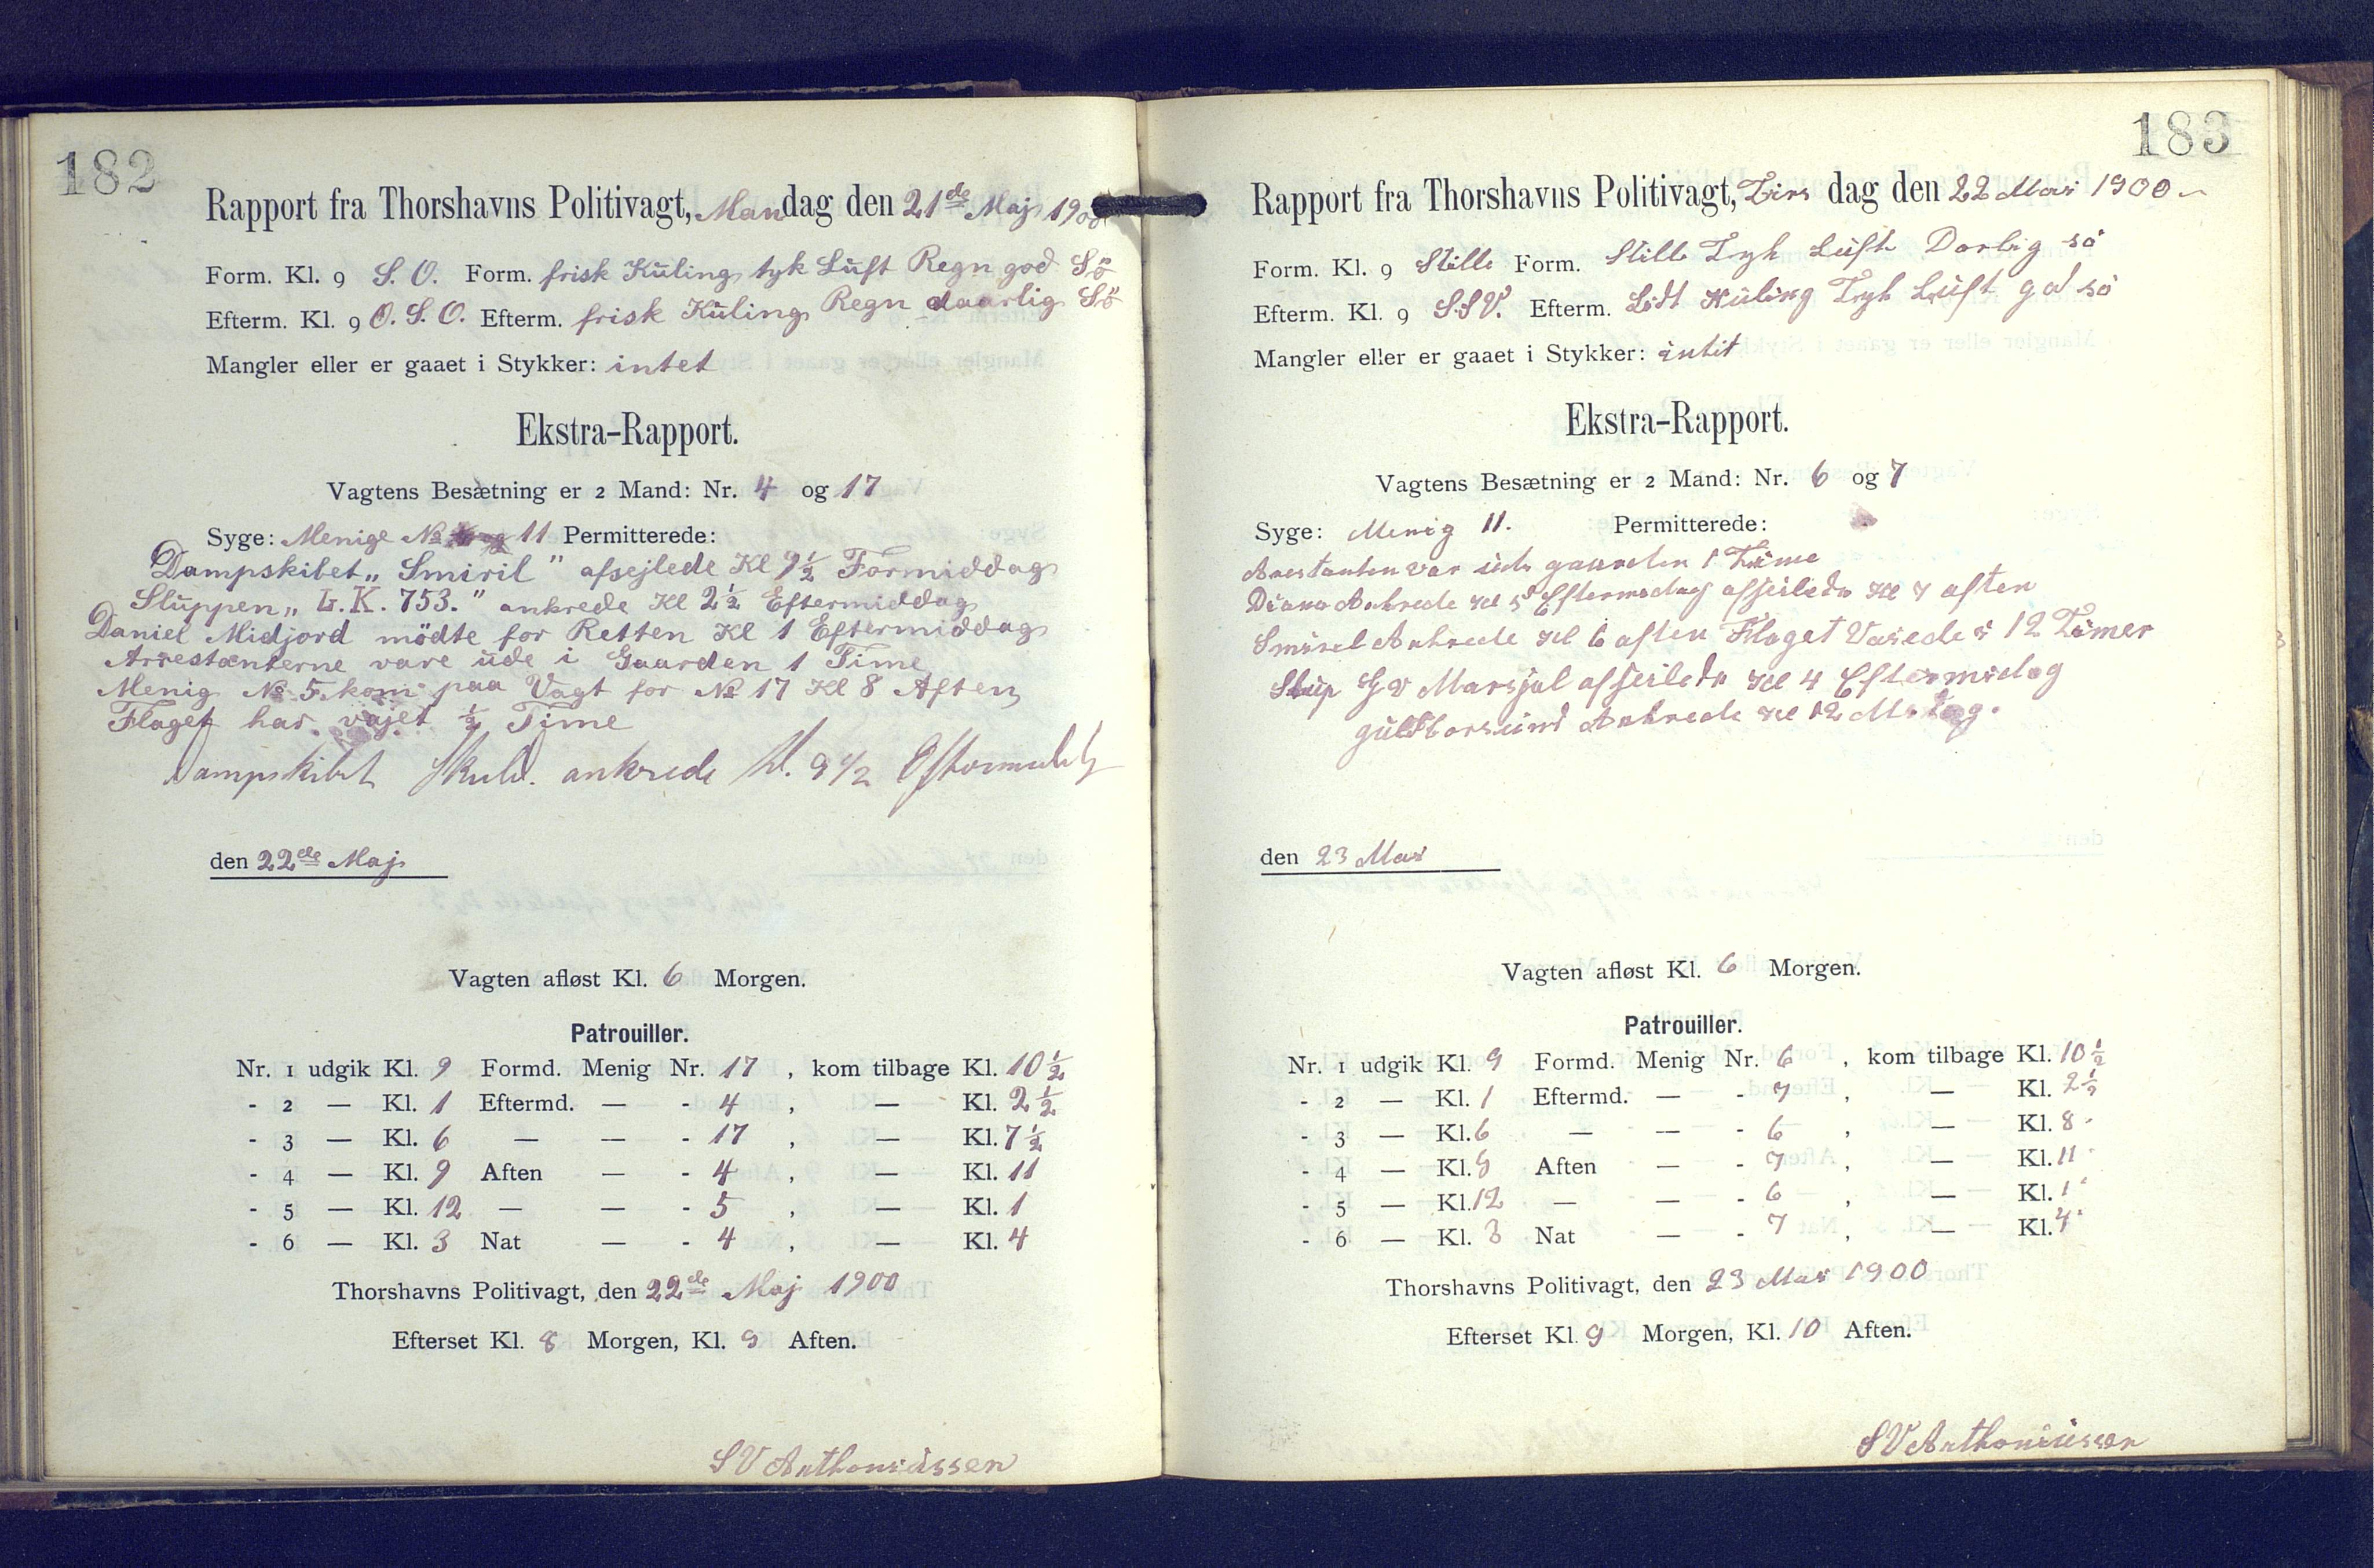 182
Rapport fra Thorshavns Politivagt, Mandag den 21de Maj 1900
Form. Kl. 9 S. O. Form. frisk Kuling tyk Luft Regn god Sö
Efterm. Kl. 9 O. S. O. Efterm. frisk Kuling Regn daarlig Sö
Mangler eller er gaaet i Stykker: intet
Ekstra-Rapport.
Vagtens Besætning er 2 Mand: Nr. 4 og 17
Syge: Menige № 11 Permitterede:
Dampskibet „Smiril" afsejlede Kl 9½ Formiddag
Sluppen „L.K. 753." ankrede Kl 2½ Eftermiddag
Daniel Midjord mödte for Retten Kl 1 Eftermiddag
Arrestanterne vare ude i Gaarden 1 Time
Menig № 5. kom paa Vagt for № 17 Kl 8 Aften
Flaget har vajet ½ Time
Dampskibet Skuld. ankrede kl. 9 1/2 Eftermiddag
den 22de Maj
Vagten afløst Kl. 6 Morgen.
Patrouiller.
Nr. 1 udgik Kl. 9 Formd. Menig Nr. 17 , kom tilbage Kl. 10½
- 2 — Kl. 1 Eftermd. — - 4 , — Kl. 2½
- 3 — Kl. 6 — — - 17 , — Kl. 7½
- 4 — Kl. 9 Aften — - 4 , — Kl. 11
- 5 — Kl. 12 — — - 5 , — Kl. 1
- 6 — Kl. 3 Nat — - 4 , — Kl. 4
Thorshavns Politivagt, den 22de Maj 1900
Efterset Kl. 8 Morgen, Kl. 9 Aften.
S V Anthoniussen
183
Rapport fra Thorshavns Politivagt, Tirsdag den 22 Mai 1900
Form. Kl. 9 Stille Form. Stille Tyk Luft Darlig sö
Efterm. Kl. 9 S.S.V. Efterm. Lidt Kuling Tyk Luft god sö
Mangler eller er gaaet i Stykker: intit
Ekstra-Rapport.
Vagtens Besætning er 2 Mand: Nr. 6 og 7
Syge: Menig 11. Permitterede:
Arestanten var ude gaarden 1 Time
Diana Ankrede Kl 5 Eftermedag afseilede Kl 7 aften
Smirel Ankrede Kl 6 aften Flaget Vaiede i 12 Timer
Slup Marsjal afseilede Kl 4 Eftermidag
guldborsund Ankrede Kl 12 Midag.
den 23 Mai
Vagten afløst Kl. 6 Morgen.
Patrouiller.
Nr. 1 udgik Kl. 9 Formd. Menig Nr. 6 , kom tilbage Kl. 10½
- 2 — Kl. 1 Eftermd. — - 7 , — Kl. 2½
- 3 — Kl. 6 — — - 6 , — Kl. 8
- 4 — Kl. 9 Aften — - 7 , — Kl. 11
- 5 — Kl. 12 — — - 6 , — Kl. 1
- 6 — Kl. 3 Nat — - 7 , — Kl. 4
Thorshavns Politivagt, den 23 Mai 1900
Efterset Kl. 9 Morgen, Kl. 10 Aften.
S V Anthoniussen